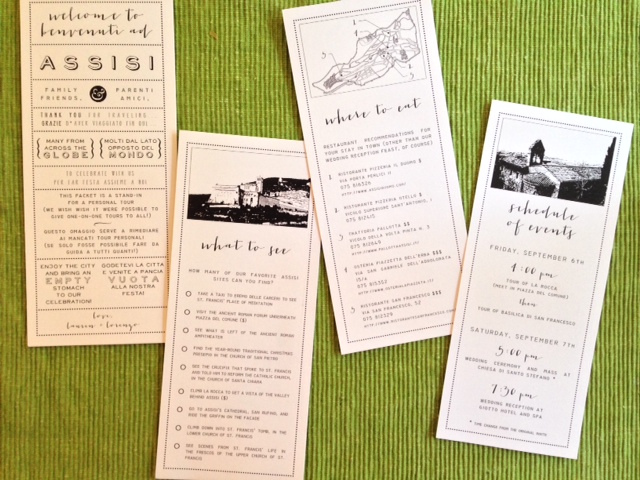 welcome to
benvenuti ad
ASSISI
FAMILY
FRIENDS,
&
PARENTI
AMICI,
THANK YOU FOR TRAVELING
GRAZIE D'AVER VIAGGIATO FIN QUI
MANY FROM
ACROSS THE
GLOBE
MOLTI DAL LATO
OPPOSTO DEL
MONDO
TO CELEBRATE WITH US
PER FAR FESTA ASSIEME A NOI
THIS PACKET IS A STAND-IN
FOR A PERSONAL TOUR
(WE WISH WIT WERE POSSIBLE TO
GIVE ONE-ON-ONE TOURS TO ALL!)
QUESTO OMAGGIO SERVE A RIMEDIARE
AI MANCATI TOUR PERSONALI
(SE SOLO FOSSE POSSIBILE FARE DA
GUIDA A TUTTI QUANTI!)
ENJOY THE CITY
AND BRING AN
EMPTY
STOMACH
TO OUR
CELEBRATION!
GODETEVI LA CITTA
E VENITE A PANCIA
VUOTA
ALLA NOSTRA
FESTA!
love,
Laura + Lorenzo
what to see
HOW MANY OF OUR FAVORITE ASSISI
SITES CAN YOU FIND?
TAKE A TAXI TO EREMO DELLE CARCERI TO SEE
ST. FRANCIS' PLACE OF MEDITATION
VISIT THE ANCIENT ROMAN FORUM UNDERNEATH
PIAZZA DEL COMUNE ($)
SEE WHAT IS LEFT OF THE ANCIENT ROMAN
AMPITHEATER
FIND THE YEAR-ROUND TRADITIONAL CHRISTMAS
PRESEPIO IN THE CHURCH OF SAN PIETRO
SEE THE CRUCIFIX THAT SPOKE TO ST. FRANCIS
AND TOLD HIM TO REFORM THE CATHOLIC CHURCH,
IN THE CHURCH OF SANTA CHIARA
CLIMB LA ROCCA TO GET A VISTA OF THE VALLEY
BEHIND ASSISI ($)
GO TO ASSISI'S CATHEDRAL, SAN RUFINO, AND
RIDE THE GRIFFIN ON THE FACADE
CLIMB DOWN INTO ST. FRANCIS' TOMB, IN THE
LOWER CHURCH OF ST. FRANCIS
SEE SCENES FROM ST. FRANCIS' LIFE IN
THE FRESCOS OF THE UPPER CHURCH OF ST.
FRANCIS
where to eat
RESTAURANT RECOMMENDATIONS FOR
YOUR STAY IN TOWN (OTHER THAN OUR
WEDDING RECEPTION FEAST, OF COURSE)
1 RISTORANTE PIZZERIA IL DUOMO $
VIA PORTA PERLICI 11
075 816326
2 RISTORANTE PIZZERIA OTELLO $
VICOLO SUPERIORE SANT'ANTONIO, 1
075 812415
3 TRATTORIA PALLOTTA $$
VICOLO DELLA VOLTA PINTA N. 3
075 812649
4 OSTERIA PIAZZETTA DELL'ERBA $$$
VIA SAN GABRIELE DELL'ADDOLORATA
15/A
075 815352
5 RISTORANTE SAN FRANCESCO $$$
VIA SAN FRANCESCO, 52
075 812329
schedule
of events
FRIDAY, SEPTEMBER 6TH
4:00 pm
TOUR OF LA ROCCA
(MEET IN PIAZZA DEL COMUNE)
then
TOUR OF BASILICA DI SAN FRANCESCO
SATURDAY, SEPTEMBER 7TH
5:00 pm
WEDDING CEREMONY AND MASS AT
CHIESA DI SANTO STEFANO *
7:30 pm
WEDDING RECEPTION AT
GIOTTO HOTEL AND SPA
* TIME CHANGE FROM THE ORIGINAL INVITE